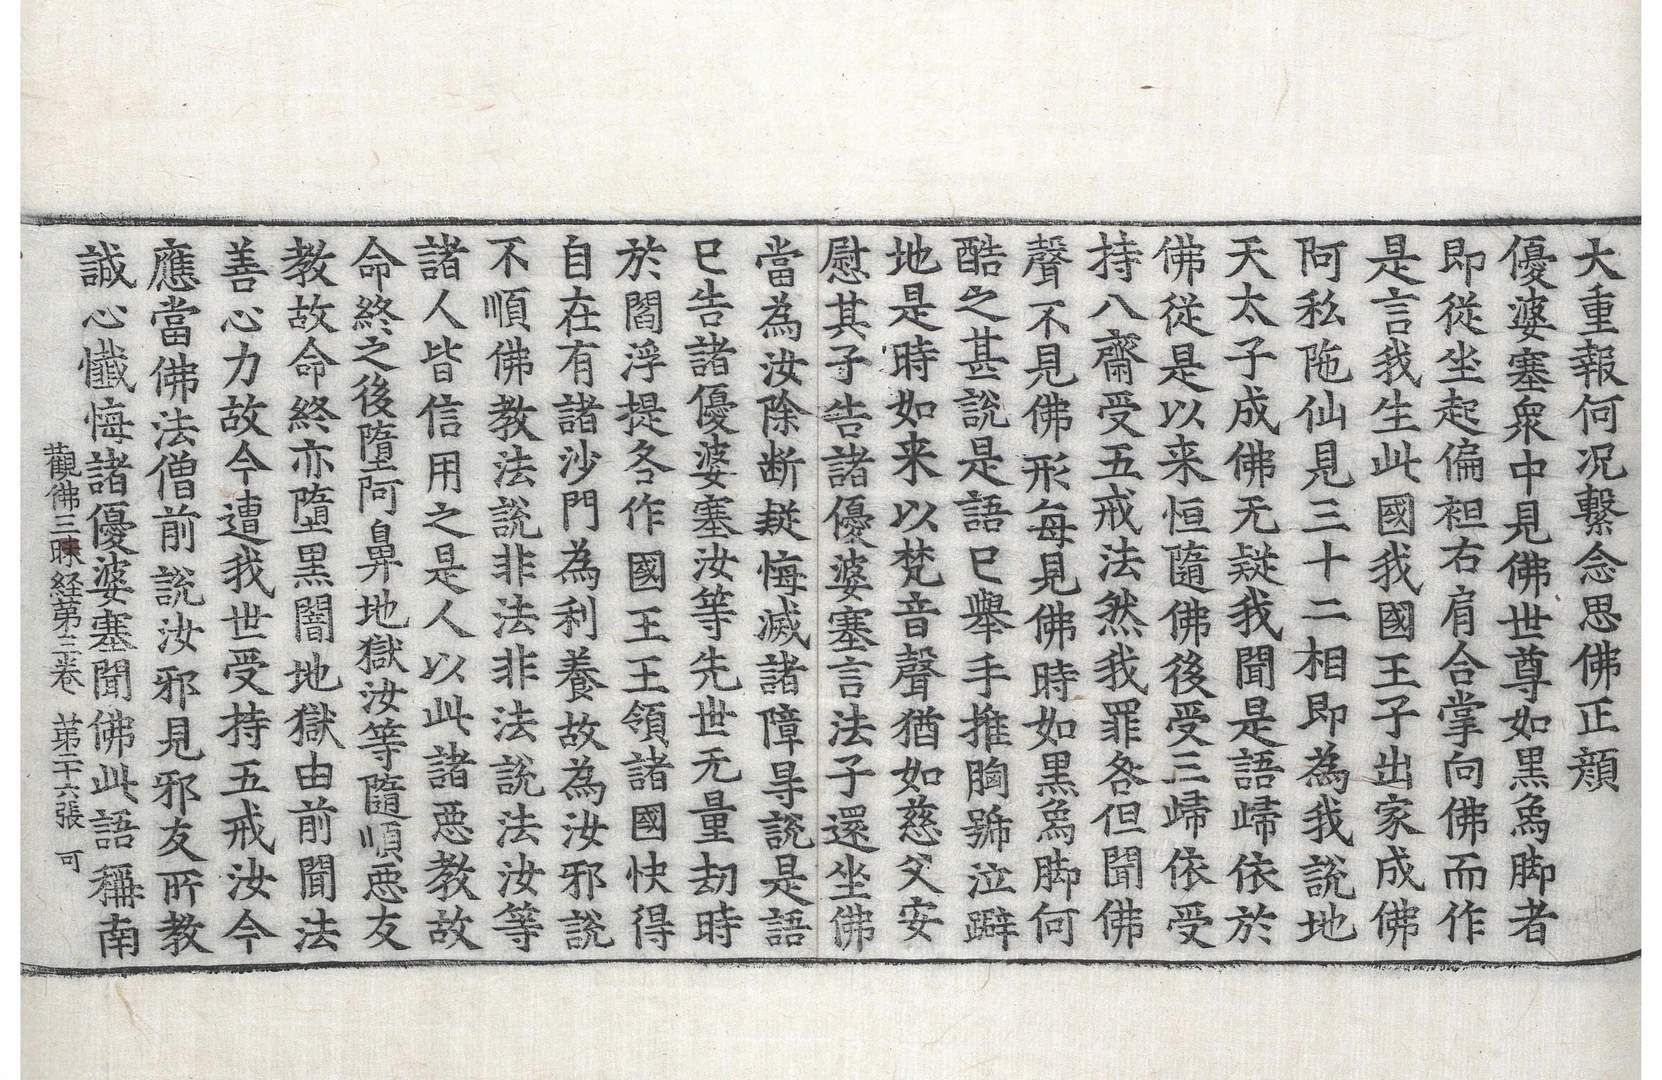 大重報何况繫念思佛正顔
優婆塞衆中見佛世尊如黒烏脚者
即從坐起偏袒右肩合掌向佛而作
是言我生此國我國王子出家成佛
阿私陁仙見三十二相即為我說地
天太子成佛无疑我聞是語歸依於
佛從是以来恒隨佛後受三歸依受
持八齋受五戒法然我罪咎但聞佛
聲不見佛形每見佛時如黒烏脚何
酷之甚說是語已舉手推胸號泣躃
地是時如来以梵音聲猶如慈父安
慰其子告諸優婆塞言法子還坐佛
當為汝除断疑悔滅諸障㝵說是語
已告諸優婆塞汝等先世无量劫時
於閻浮提各作國王王領諸國快得
自在有諸沙門為利養故為汝邪說
不順佛教法說非法非法說法汝等
諸人皆信用之是人以此諸惡教故
命終之後墮阿鼻地獄汝等隨順惡友
教故命終亦墮黒闇地獄由前聞法
善心力故今遭我世受持五戒汝今
應當佛法僧前說汝邪見邪友所教
誠心懺悔諸優婆塞聞佛此語稱南
觀佛三昧経第三卷 第二十六張 可